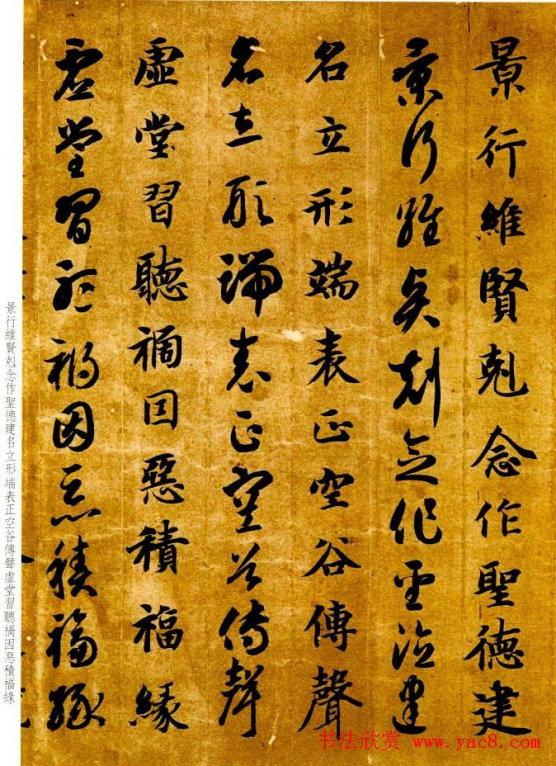 景行維賢剋念作聖德建
景行維賢剋念作聖德建
名立形端表正空谷傳聲
名立形端表正空谷傳聲
虛堂習聽禍因惡積福緣
虛堂習聽禍因惡積福緣
景行維賢剋念作聖德建名立形端表正空谷傳聲虛堂習聽禍因惡積福緣
书法欣赏 www.yac8.com